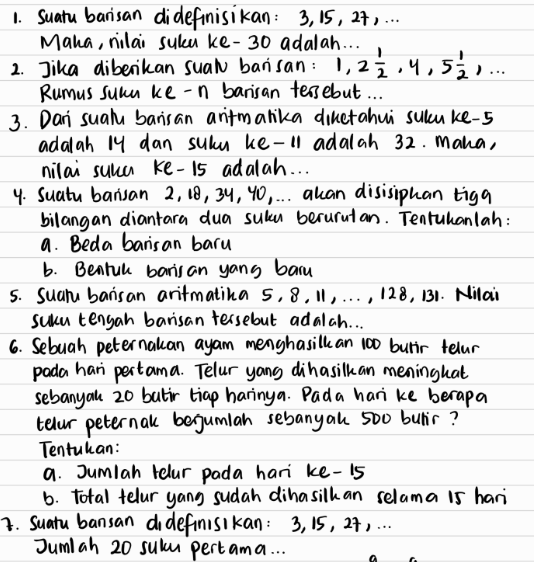 1. Suatu barisan didefinisikan: 3, 15, 27, ...
Maka, nilai suku ke-30 adalah...
2. Jika diberikan suatu barisan: 1, 2 1/2, 4, 5 1/2, ...
Rumus suku ke-n barisan tersebut...
3. Dari suatu barisan aritmatika diketahui suku ke-5
adalah 14 dan suku ke-11 adalah 32. Maka,
nilai suku ke-15 adalah...
4. Suatu barisan 2, 18, 34, 40, ... akan disisipkan tiga
bilangan diantara dua suku berurutan. Tentukanlah:
a. Beda barisan baru
b. Bentuk barisan yang baru
5. Suatu barisan aritmatika 5, 8, 11, ..., 128, 131. Nilai
suku tengah barisan tersebut adalah...
6. Sebuah peternakan ayam menghasilkan 100 butir telur
pada hari pertama. Telur yang dihasilkan meningkat
sebanyak 20 butir tiap harinya. Pada hari ke berapa
telur peternak berjumlah sebanyak 500 butir?
Tentukan:
a. Jumlah telur pada hari ke-15
b. Total telur yang sudah dihasilkan selama 15 hari
7. Suatu barisan didefinisikan: 3, 15, 27, ...
Jumlah 20 suku pertama...